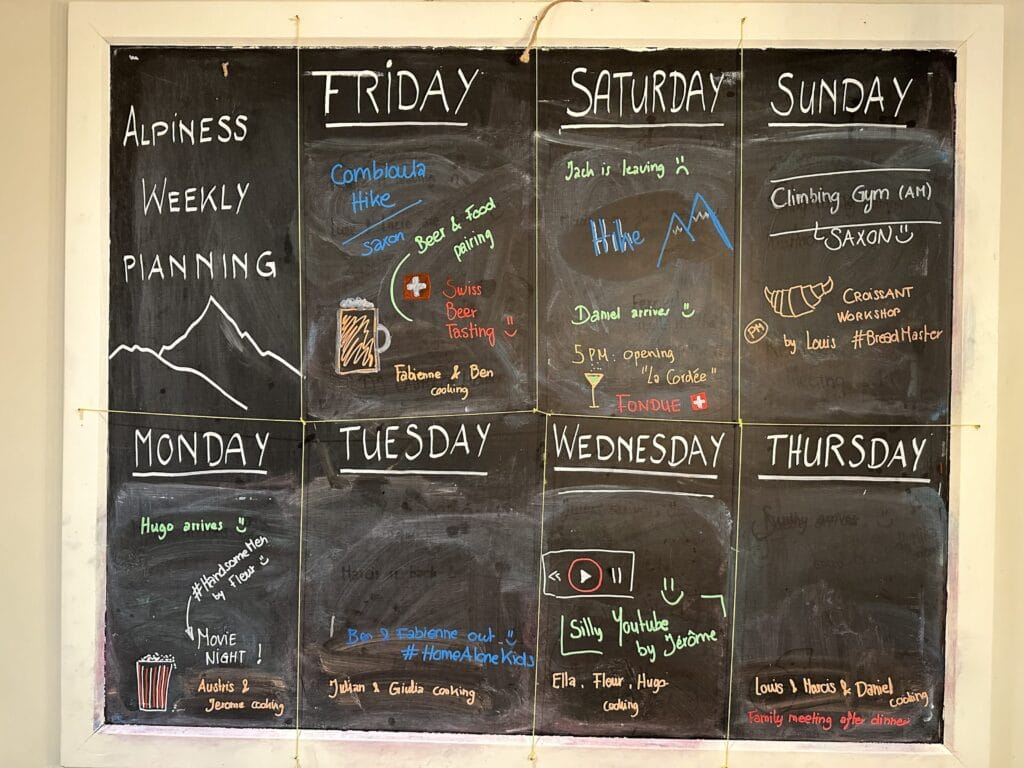 ALPINESS
WEEKLY
PLANNING
FRIDAY
Combioula
Hike
Saxon
Beer & Food
pairing
Swiss
Beer
Tasting
Fabienne & Ben
cooking
SATURDAY
Jack is leaving
Hike
Daniel arrives
5 PM: opening
"La Cordée"
FONDUE
SUNDAY
Climbing Gym (AM)
SAXON
CROISSANT
WORKSHOP
PM
by Louis #BreadMaster
MONDAY
Hugo arrives
#HandsomeMen
by Fleur
MOVIE
NIGHT!
Austris &
Jerome cooking
TUESDAY
Ben & Fabienne out
#HomeAloneKids
Julian & Giulia cooking
WEDNESDAY
Silly Youtube
by Jérôme
Ella, Fleur, Hugo
cooking
THURSDAY
Louis & Marcis & Daniel
cooking
Family meeting after dinner